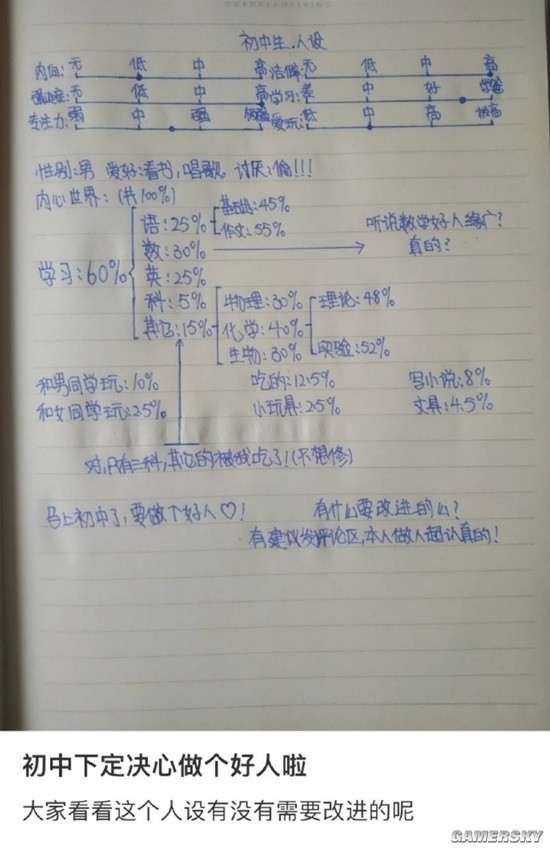 OURDREAMISHING
初中生.人设
内向:无 低 中 高 洁癖:无 低 中 高
无 低 中 高 学习:差 中 好 学霸
专注力:弱 中 强 极强 爱玩:低 中 高 极高
性别:男 爱好:看书,唱歌 讨厌:偷!!!
内心世界:(共100%)
学习:60%
语:25% 基础:45%
作文:55%
数:30% 听说数学好人缘广?
真的?
英:25%
科:5% 物理:30% 理论:48%
其它:15% 化学:40%
生物:30% 实验:52%
和男同学玩:10% 吃的:12.5% 写小说:8%
和女同学玩:2.5% 小玩具:2.5% 文具:4.5%
对,只有三科,其它的被我吃了!(不想修)
马上初中了,要做个好人♡! 有什么要改进的么?
有建议发评论区,本人做人超认真的!
初中下定决心做个好人啦
大家看看这个人设有没有需要改进的呢
GAMERSKY